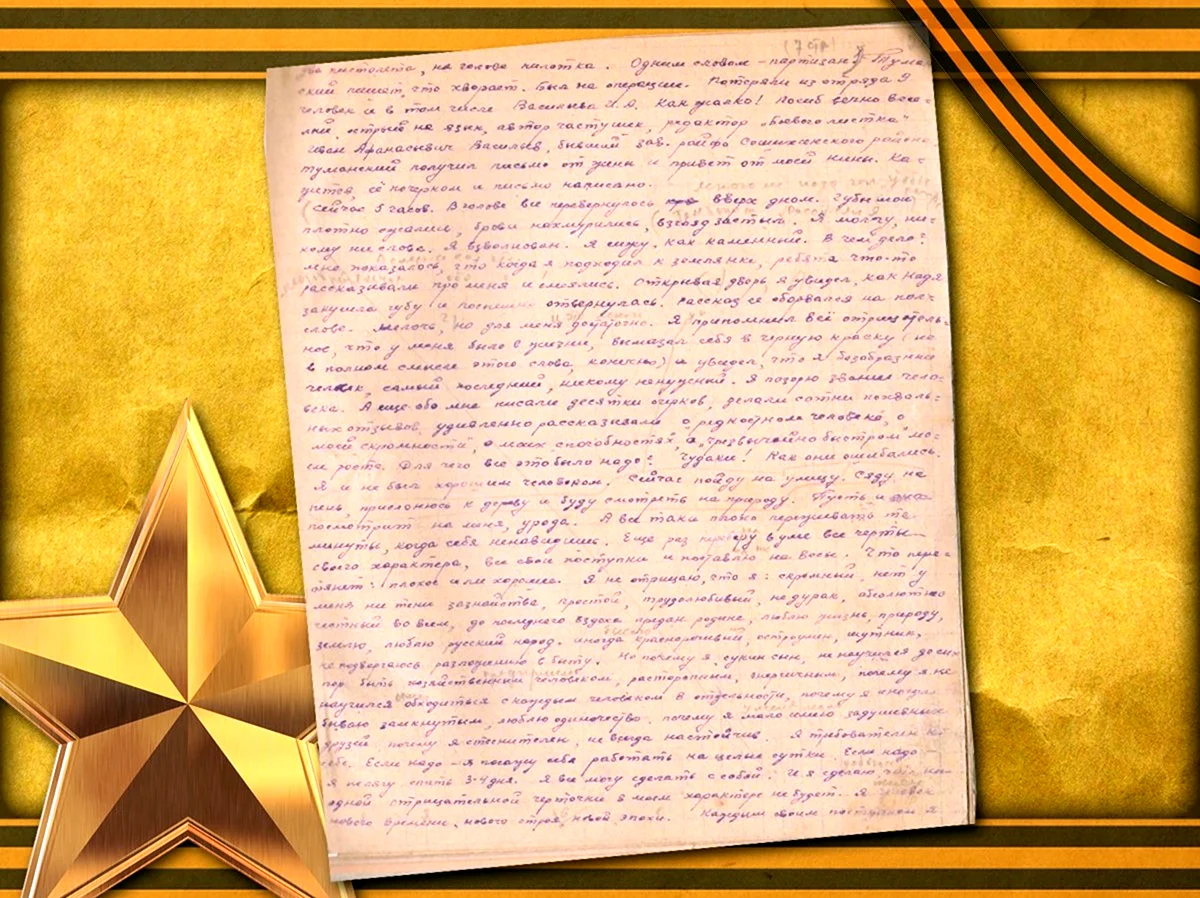 два пистолета, на голове пилотка. Одним словом - партизан. Тума-
ский пишет, что хворает. Был на операции. Потеряли из отряда 9
человек и в том числе Васильева И.А. Как жалко! Погиб вечно весе-
лый, острый на язык, автор частушек, редактор „Боевого листка"
Иван Афанасьевич Васильев, бывший зав. райфо Сошихинского района.
Туманский получил письмо от жены и привет от моей Нины. Ка-
жется, её почерком и письмо написано.
Сейчас 5 часов. В голове все перевернулось вверх дном. Губы мои
плотно сжались, брови нахмурились, взгляд застыл. Я молчу, ни-
кому ни слова. Я взволнован. Я сижу, как каменный. В чем дело?
Мне показалось, что когда я подходил к землянке, ребята что-то
рассказывали про меня и смеялись. Открывая дверь, я увидел, как Надя
закусила губу и поспешно отвернулась. Рассказ её оборвался на пол-
слове. Мелочь, но для меня достаточно. Я припомнил всё отрицатель-
ное, что у меня было в жизни, вымазал себя в черную краску (не
в полном смысле этого слова, конечно) и увидел, что я безобразный
человек, самый последний, никому ненужный. Я позорю звание чело-
века. А еще обо мне писали десятки очерков, делали сотни похваль-
ных отзывов, удивленно рассказывали о „редкостном человеке", о
„моей скромности", о моих способностях, о „чрезвычайно быстром" мо-
ем росте. Для чего все это было надо? Чудаки! Как они ошибались.
Я и не был хорошим человеком. Сейчас пойду на улицу. Сяду на
пень, прислонюсь к дереву и буду смотреть на природу. Пусть и она
посмотрит на меня, урода. А все таки плохо переживать те
минуты, когда себя ненавидишь. Еще раз переберу в уме все черты
своего характера, все свои поступки и поставлю на весы. Что пере-
тянет: плохое или хорошее. Я не отрицаю, что я: скромный, нет у
меня ни тени зазнайства, простой, трудолюбивый, не дурак, абсолютно
честный во всем, до последнего вздоха предан родине, люблю жизнь, природу,
землю, люблю русский народ. иногда красноречивый, остроумен, шутник,
не подвергаюсь разложению в быту. Но почему я, сукин сын, не научился до сих
пор быть хозяйственным человеком, расторопным, энергичным, почему я не
научился обходиться с каждым человеком в отдельности, почему я иногда
бываю замкнутым, люблю одиночество, почему я мало имею задушевных
друзей, почему я стеснителен, не всегда настойчив. Я требователен к
себе. Если надо - я посажу себя работать на целые сутки. Если надо
я не лягу спать 3-4 дня. Я все могу сделать с собой. И я сделаю, ни
одной отрицательной черточки в моем характере не будет. Я человек
нового времени, нового строя, новой эпохи. Каждым своим поступком я